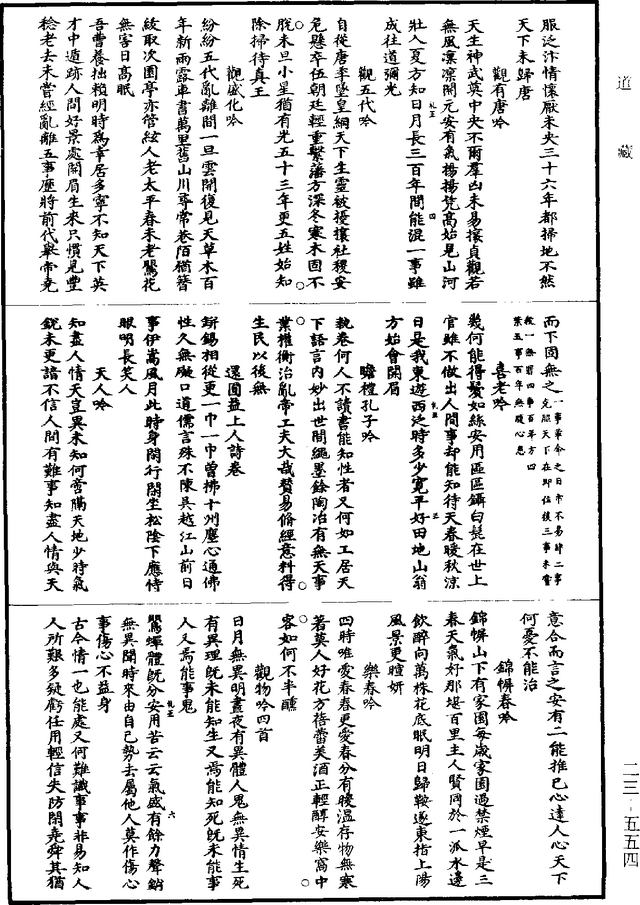 道藏
服泛汴情懷厭未央三十六年都掃地不然
天下未歸唐
觀有唐吟
天生神武英中央不爾羣凶未易攘貞觀若
無風凛凛開元安有氣揚揚凭高始見山河
壯入夏方知日月長三百年間能混一事雖
成往道彌光
觀五代吟
自從唐李墜皇綱天下生靈被擾攘社稷安
危懸卒伍朝廷輕重繫藩方深冬寒木固不
脫未旦小星猶有光五十三年更五姓始知
除掃待真王
觀盛化吟
紛紛五代亂離間一旦雲開復見天草木百
年新雨露車書萬里舊山川尋常巷陌猶簪
紱取次園亭亦管絃人老太平春未老鶯花
無害日高眠
吾曹養拙賴明時為幸居多寧不知天下英
才中遁跡人間好景處開眉生來只慣見豐
稔老去未嘗經亂離五事歷將前代舉帝堯
而下固無之
一事革命之日市不易肆二事
克服天下在即位後三事未嘗
殺一無罪四事百年方四
葉五事百年無腹心患
喜老吟
幾何能得鬢如絲安用區區鑷白髭在世上
官雖不做出人間事却能知待天春暖秋涼
日是我東遊西泛時多少寬平好田地山翁
方始會開眉
瞻禮孔子吟
執卷何人不讀書能知性者又何如工居天
下語言內妙出世間繩墨餘陶冶有無天事
業權衡治亂帝工夫大哉贊易脩經意料得
生民以後無
還圓益上人詩卷
缾錫相從更一巾一巾曾拂十州塵心通佛
性久無礙口道儒言殊不陳吳越江山前日
事伊嵩風月此時身閒行閒坐松陰下應恃
眼明長笑人
天人吟
知盡人情天豈異未知何啻隔天地少時氣
銳未更諳不信人間有難事知盡人情與天
意合而言之安有二能推己心達人心天下
何憂不能治
錦幈春吟
錦幈山下有家園每歲家園過禁煙早是三
春天氣好那堪百里主人賢同於一派水邊
飲醉向萬株花底眠明日歸鞍遂東指上陽
風景更暄妍
樂春吟
四時唯愛春春更愛春分有暖溫存物無寒
著莫人好花方蓓蕾美酒正輕醇安樂窩中
客如何不半醺
觀物吟四首
日月無異明晝夜有異體人鬼無異情生死
有異理既未能知生又焉能知死既未能事
人又焉能事鬼
鶯蟬體既分安用苦云云氣盛有餘力聲銷
無異聞時來由自己勢去屬他人莫作傷心
事傷心不益身
古今情一也能處又何難識事事非易知人
人所艱多疑虧任用輕信失防閑堯舜其猶
二三-五五四